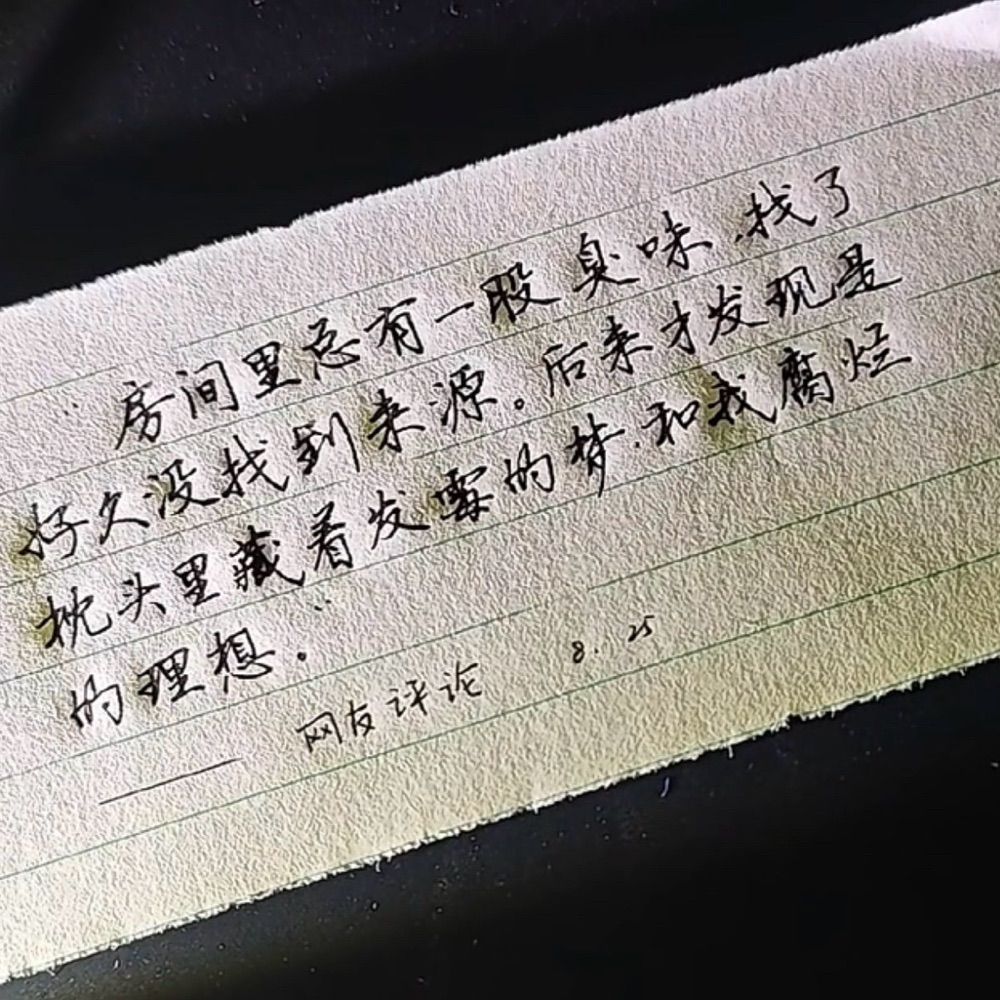 "房间里总有一股臭味,找了
好久没找到来源。后来才发现是
枕头里藏着发霉的梦,和我腐烂
的理想。"
——网友评论 8.25